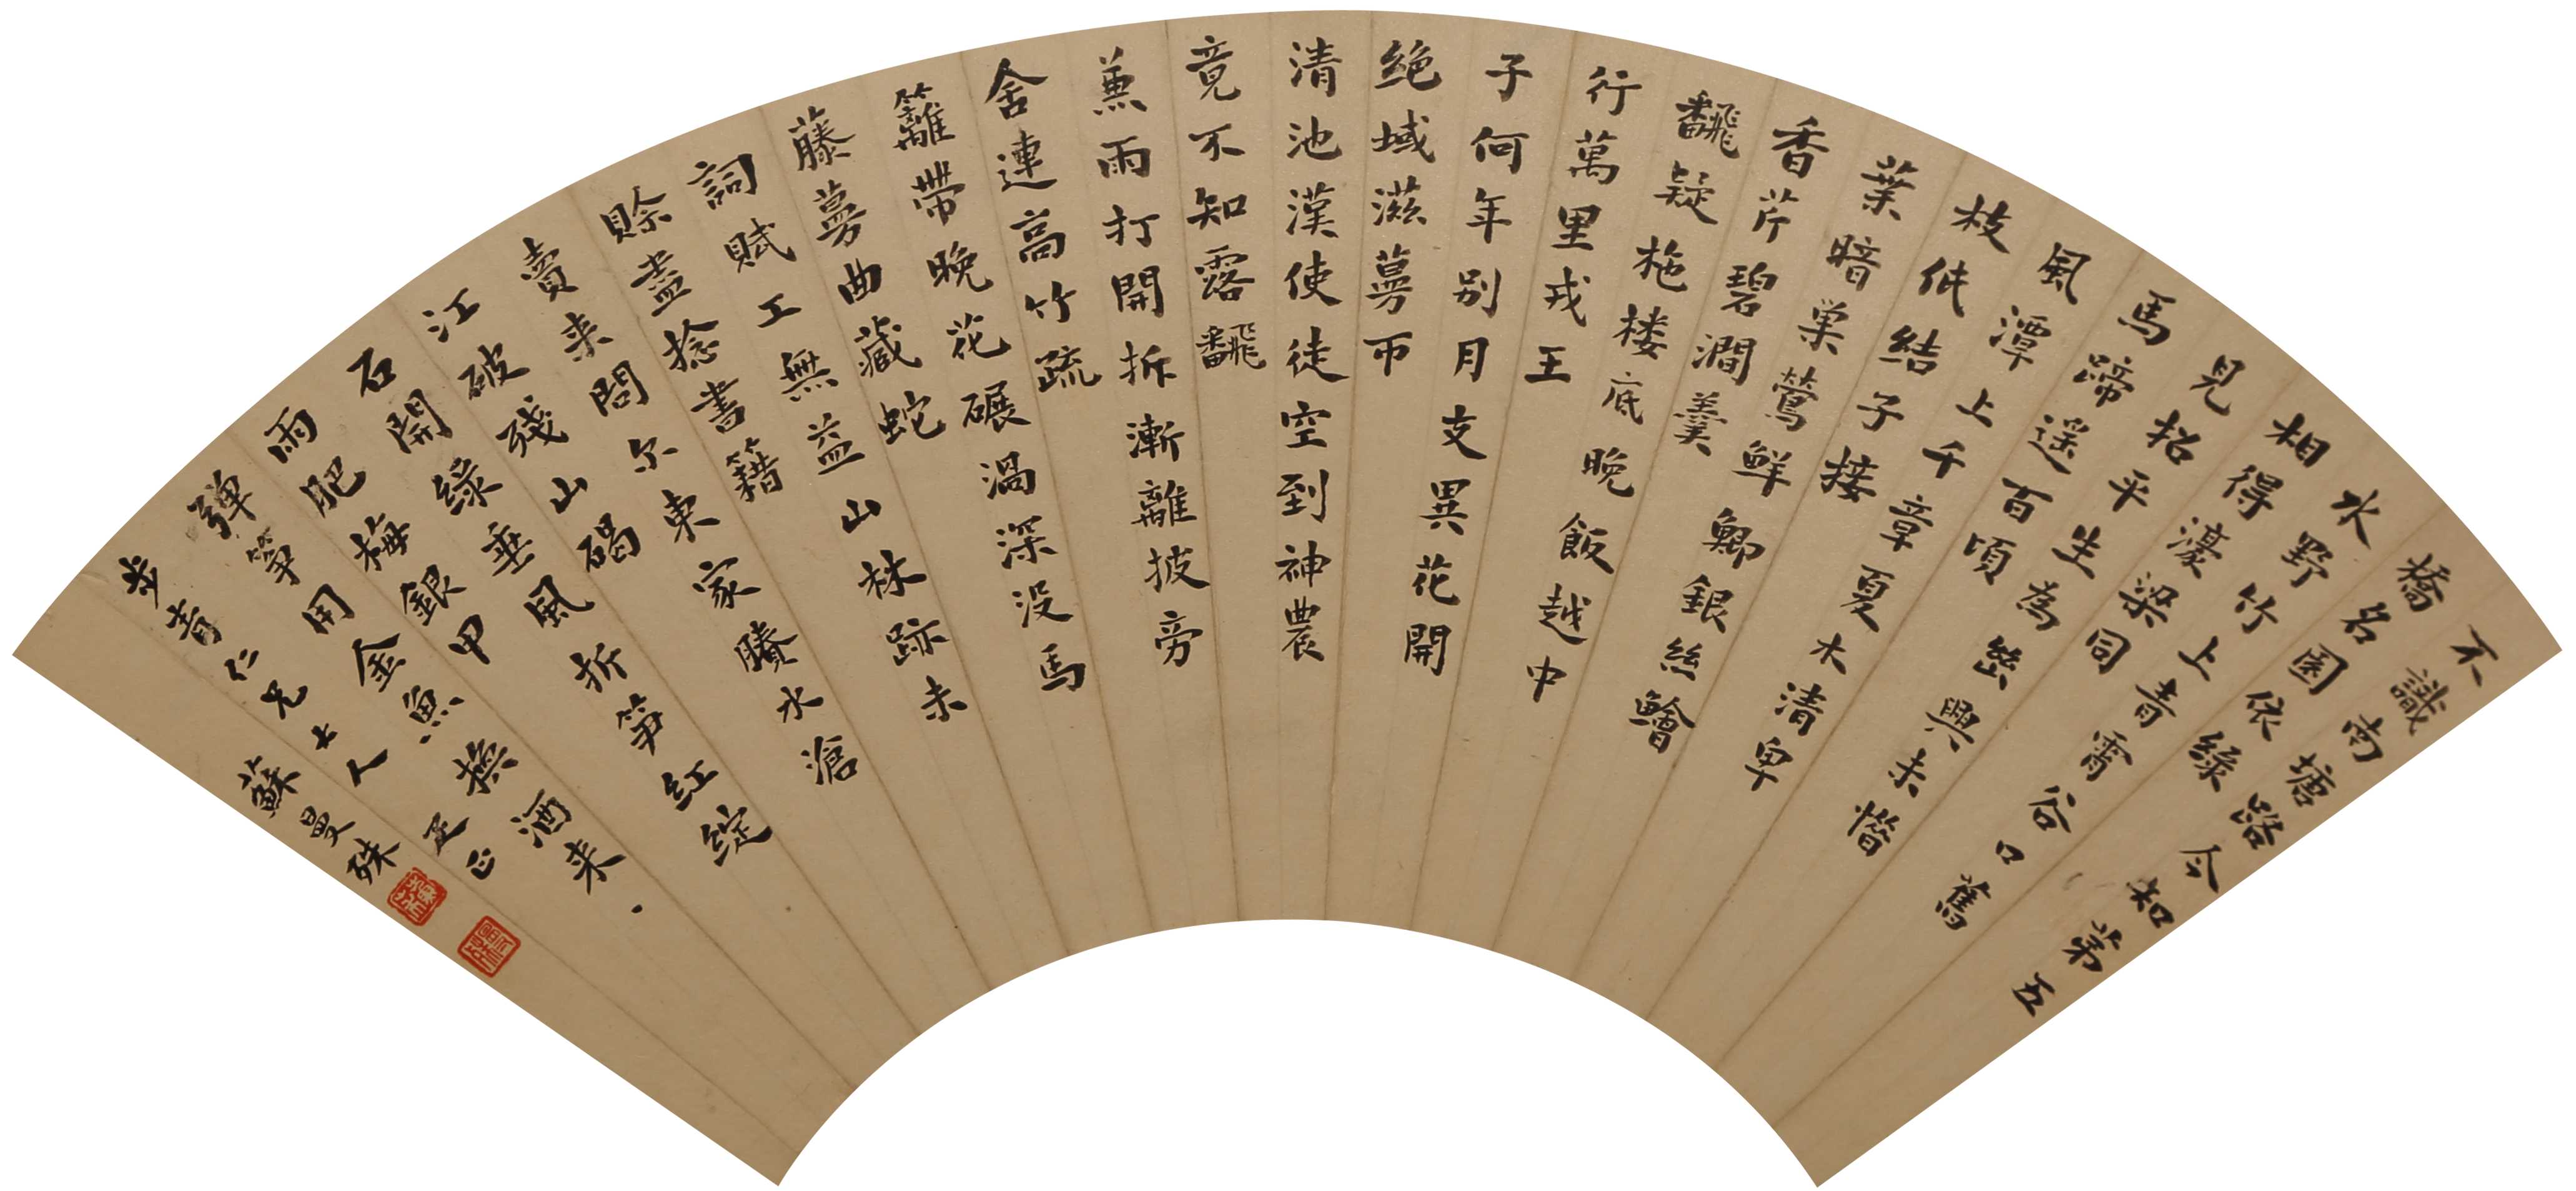 不識南塘路今知第五
橋名園依綠
水野竹上青霄谷口舊
相得濠梁同
見招平生為幽興未惜
馬蹄遥百頃
風潭上千章夏木清卑
枝低結子接
葉暗巢鶯鮮鯽銀絲鱠
香芹碧澗羹
飜疑柂楼底晚飯越中
行萬里戎王
子何年別月支異花開
绝域滋蔓帀
清池漢使徒空到神農
竟不知露飜
兼雨打開拆漸離披旁
舍連高竹疏
籬帶晚花碾渦深没馬
藤蔓曲藏蛇
詞賦工無益山林跡未
賒盡捻書籍
賣来問尔東家賸水滄
江破殘山碣
石開綠垂風折笋紅綻
雨肥梅銀甲
彈箏用金魚換酒来
步青仁兄大人疋正
蘇曼殊